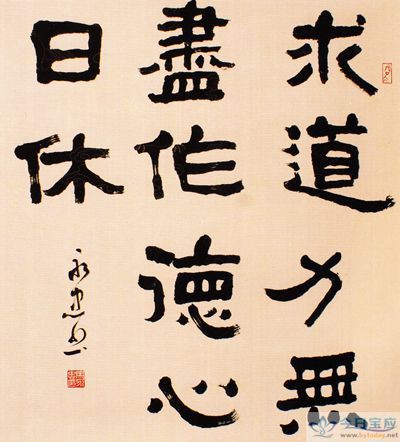 求道力無
盡作德心
日休
今日宝应
www.bytoday.net